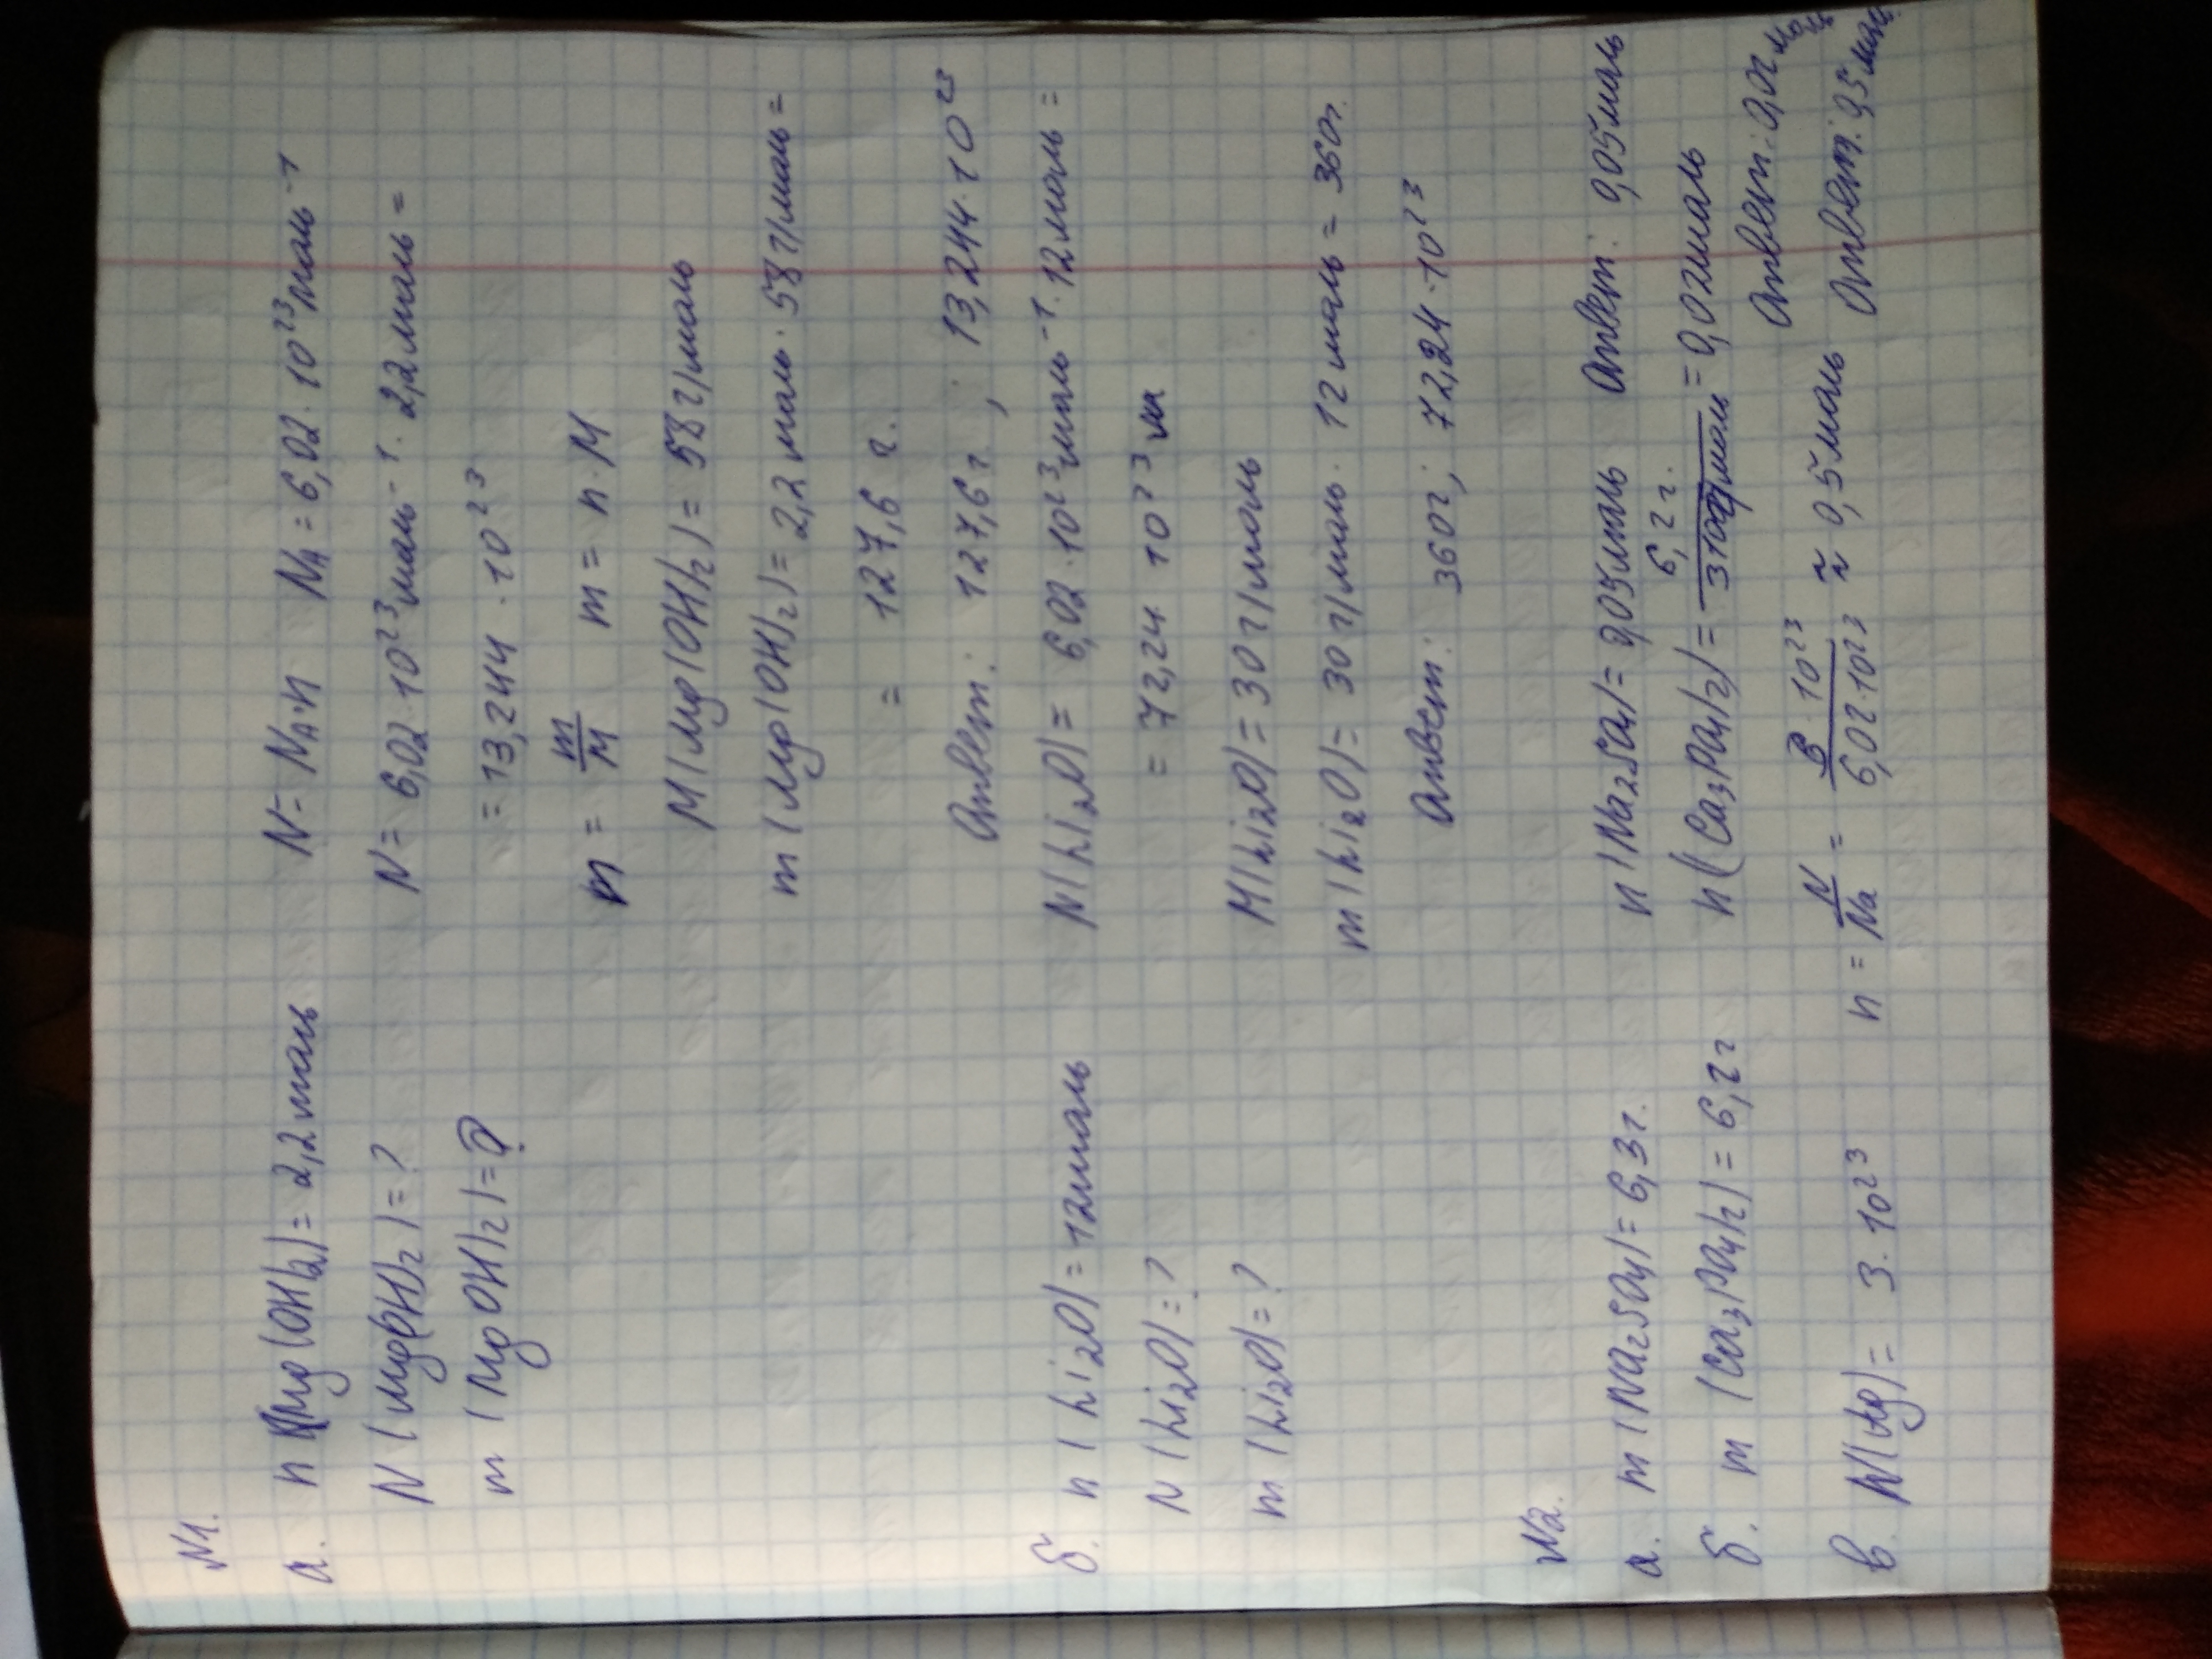 N1.
а. n (Mg(OH)2) = 2,2 моль   N = NA·n   NA = 6,02 · 10²³ моль⁻¹
N (Mg(OH)2) = ?   N = 6,02 · 10²³ моль⁻¹ · 2,2 моль =
m (Mg OH)2) = ?   = 13,244 · 10²³
n = m/M   m = n · M
M (Mg(OH)2) = 58 г/моль
m (Mg(OH)2) = 2,2 моль · 58 г/моль =
= 127,6 г.
Ответ: 127,6 г ; 13,244 · 10²³
б. n (Li2O) = 12 моль   N(Li2O) = 6,02 · 10²³ моль⁻¹ · 12 моль =
N (Li2O) = ?   = 72,24 10²³
m (Li2O) = ?   M(Li2O) = 30 г/моль
m (Li2O) = 30 г/моль · 12 моль = 360г.
Ответ: 360г; 72,24 · 10²³
N2.
а. m (Na2SO4) = 6,3 г.   n (Na2SO4) = 0,05 моль   Ответ: 0,05 моль
б. m (Ca3(PO4)2) = 6,2 г   n (Ca3(PO4)2) = 6,2 г. / 310 г/моль = 0,02 моль
Ответ: 0,02 моль
в. N(Ag) = 3 · 10²³   n = N/Na = 3 · 10²³ / 6,02 · 10²³ ≈ 0,5 моль   Ответ: 0,5 моль